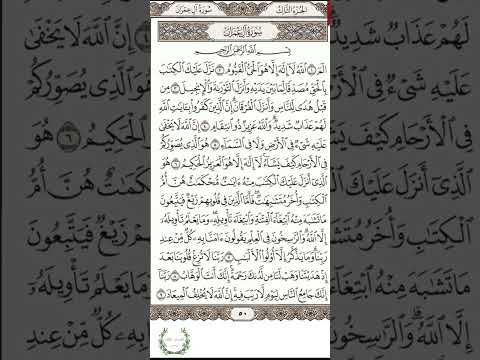 الجزء الثالث سورة آل عمران
سورة آل عمران
بِسۡمِ ٱللَّهِ ٱلرَّحۡمَٰنِ ٱلرَّحِيمِ
الٓمٓ ١ ٱللَّهُ لَآ إِلَٰهَ إِلَّا هُوَ ٱلۡحَيُّ ٱلۡقَيُّومُ ٢ نَزَّلَ عَلَيۡكَ ٱلۡكِتَٰبَ
بِٱلۡحَقِّ مُصَدِّقٗا لِّمَا بَيۡنَ يَدَيۡهِ وَأَنزَلَ ٱلتَّوۡرَىٰةَ وَٱلۡإِنجِيلَ ٣ مِن
قَبۡلُ هُدٗى لِّلنَّاسِ وَأَنزَلَ ٱلۡفُرۡقَانَۗ إِنَّ ٱلَّذِينَ كَفَرُواْ بِـَٔايَٰتِ ٱللَّهِ
لَهُمۡ عَذَابٞ شَدِيدٞۗ وَٱللَّهُ عَزِيزٞ ذُو ٱنتِقَامٍ ٤ إِنَّ ٱللَّهَ لَا يَخۡفَىٰ
عَلَيۡهِ شَيۡءٞ فِي ٱلۡأَرۡضِ وَلَا فِي ٱلسَّمَآءِ ٥ هُوَ ٱلَّذِي يُصَوِّرُكُمۡ
فِي ٱلۡأَرۡحَامِ كَيۡفَ يَشَآءُۚ لَآ إِلَٰهَ إِلَّا هُوَ ٱلۡعَزِيزُ ٱلۡحَكِيمُ ٦ هُوَ
ٱلَّذِيٓ أَنزَلَ عَلَيۡكَ ٱلۡكِتَٰبَ مِنۡهُ ءَايَٰتٞ مُّحۡكَمَٰتٌ هُنَّ أُمُّ
ٱلۡكِتَٰبِ وَأُخَرُ مُتَشَٰبِهَٰتٞۖ فَأَمَّا ٱلَّذِينَ فِي قُلُوبِهِمۡ زَيۡغٞ فَيَتَّبِعُونَ
مَا تَشَٰبَهَ مِنۡهُ ٱبۡتِغَآءَ ٱلۡفِتۡنَةِ وَٱبۡتِغَآءَ تَأۡوِيلِهِۦۖ وَمَا يَعۡلَمُ تَأۡوِيلَهُۥٓ
إِلَّا ٱللَّهُۗ وَٱلرَّٰسِخُونَ فِي ٱلۡعِلۡمِ يَقُولُونَ ءَامَنَّا بِهِۦ كُلّٞ مِّنۡ عِندِ
رَبِّنَاۗ وَمَا يَذَّكَّرُ إِلَّآ أُوْلُواْ ٱلۡأَلۡبَٰبِ ٧ رَبَّنَا لَا تُزِغۡ قُلُوبَنَا بَعۡدَ
إِذۡ هَدَيۡتَنَا وَهَبۡ لَنَا مِن لَّدُنكَ رَحۡمَةًۚ إِنَّكَ أَنتَ ٱلۡوَهَّابُ ٨ رَبَّنَآ
إِنَّكَ جَامِعُ ٱلنَّاسِ لِيَوۡمٖ لَّا رَيۡبَ فِيهِۚ إِنَّ ٱللَّهَ لَا يُخۡلِفُ ٱلۡمِيعَادَ ٩
٥٠